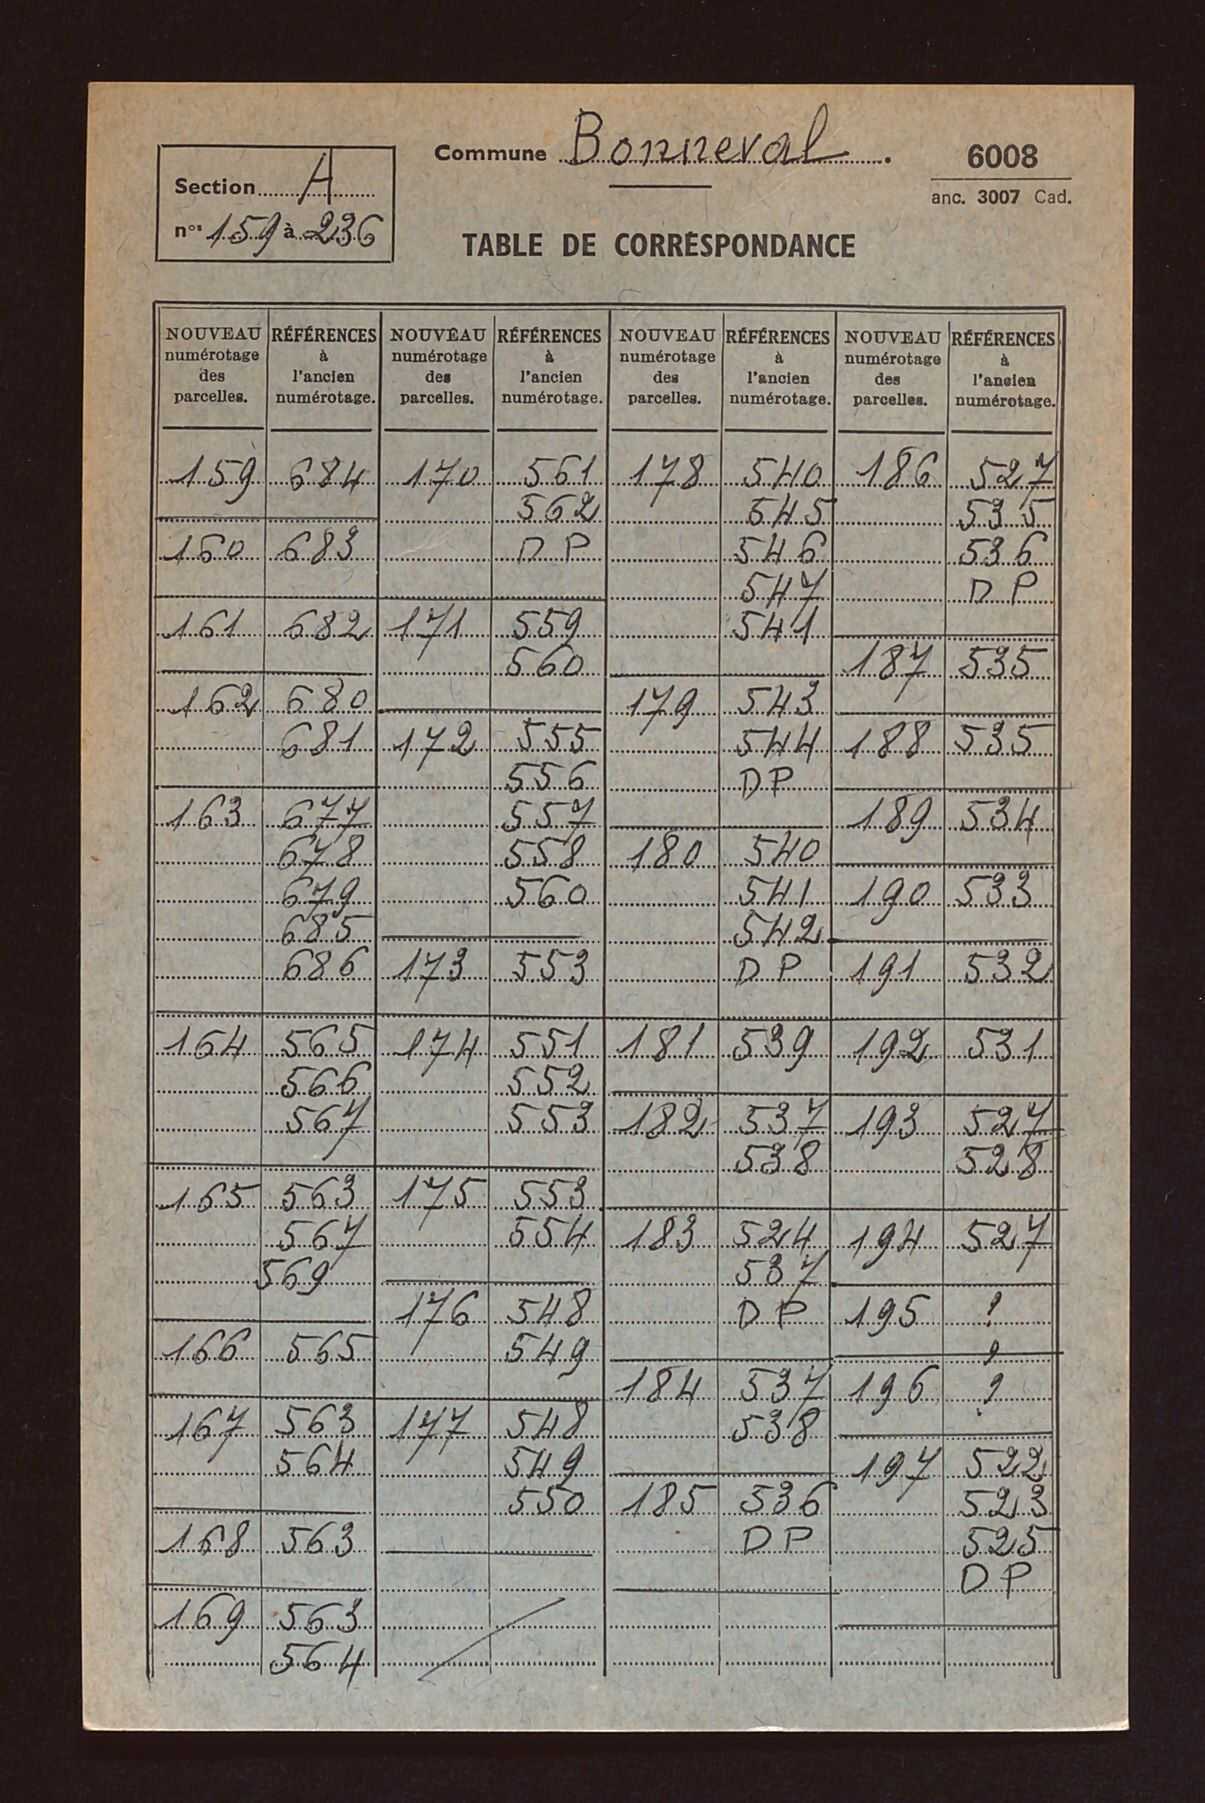 Section A
n.os 159 à 236
Commune Bonneval.
6008
anc. 3007 Cad.
TABLE DE CORRESPONDANCE
NOUVEAU numérotage des parcelles.
RÉFÉRENCES à l'ancien numérotage.
NOUVEAU numérotage des parcelles.
RÉFÉRENCES à l'ancien numérotage.
NOUVEAU numérotage des parcelles.
RÉFÉRENCES à l'ancien numérotage.
NOUVEAU numérotage des parcelles.
RÉFÉRENCES à l'ancien numérotage.
159 684
160 683
161 682
162 680
681
163 677
678
679
685
686
164 565
566
567
165 563
567
569
166 565
167 563
564
168 563
169 563
564
170 561
562
DP
171 559
560
172 555
556
557
558
560
173 553
174 551
552
553
175 553
554
176 548
549
177 548
549
550
178 540
545
546
547
541
179 543
544
DP
180 540
541
542
DP
181 539
182 537
538
183 524
537
DP
184 537
538
185 536
DP
186 527
535
536
DP
187 535
188 535
189 534
190 533
191 532
192 531
193 527
528
194 527
195 ?
?
196 ?
197 522
523
525
DP